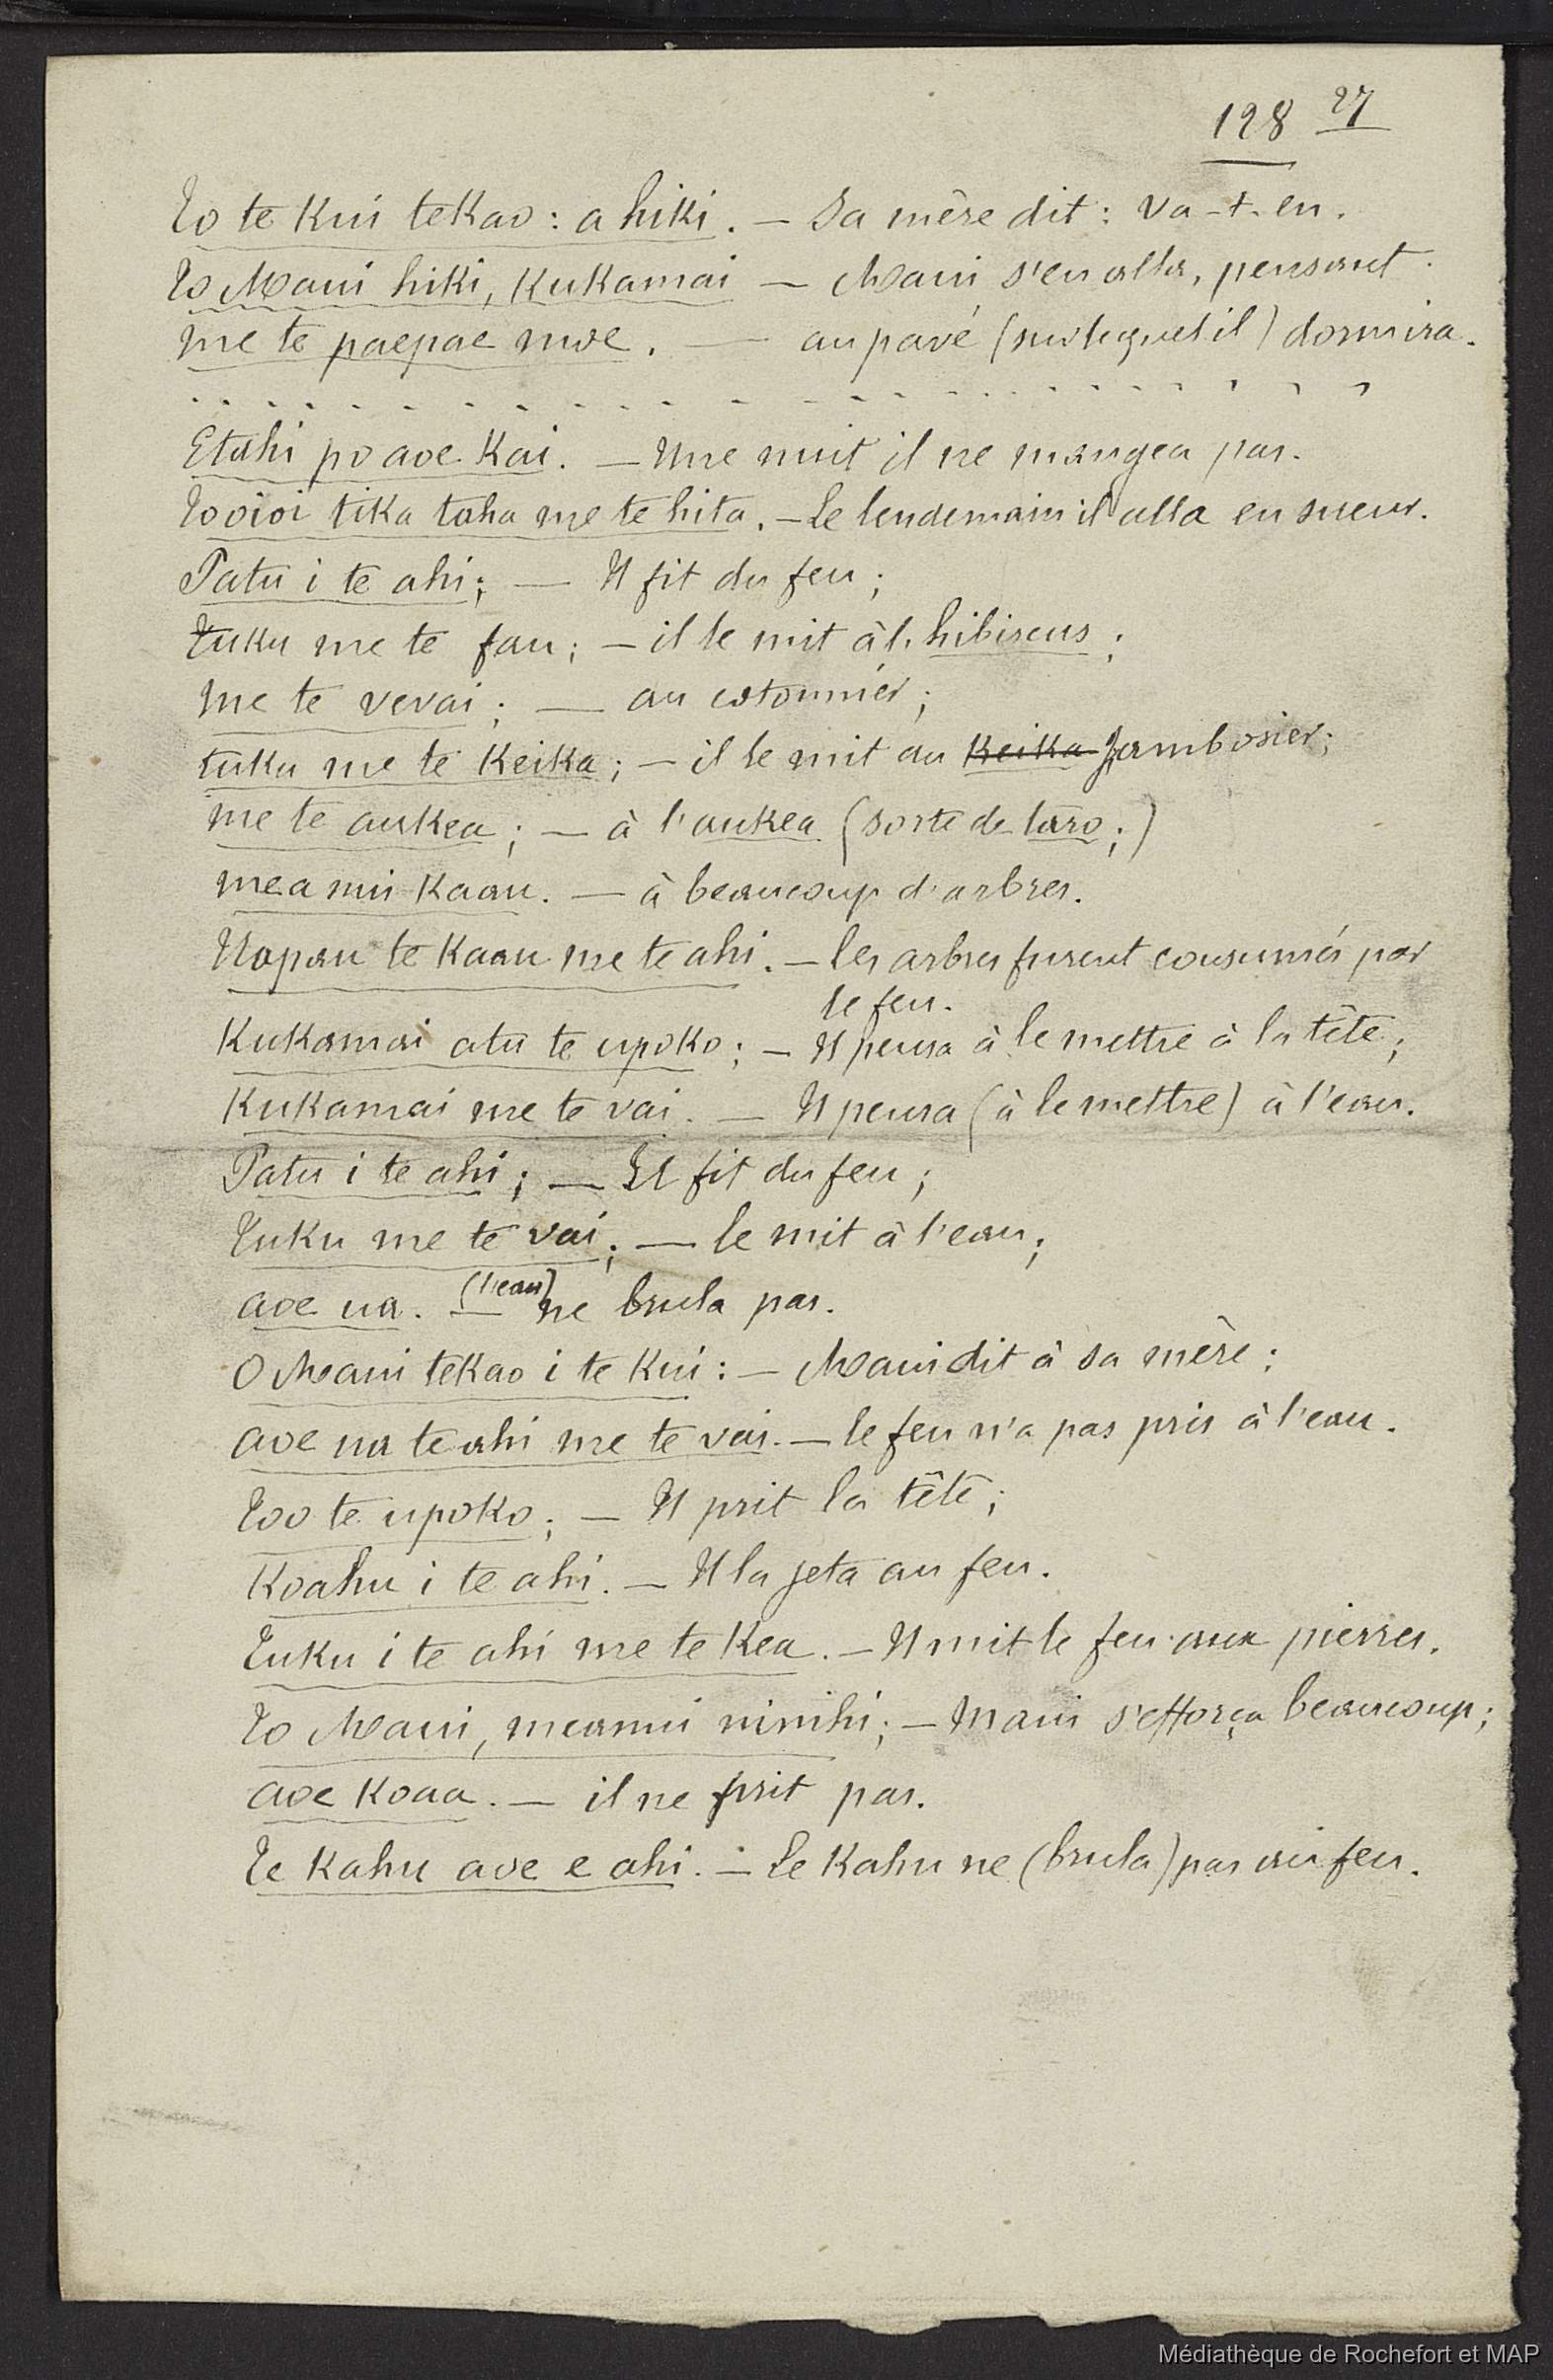 128 27
To te Kui teKao : a hiki. — Sa mère dit : Va-t-en.
To Maui hiki, KuKamai — Maui s'en alla, pensant :
me te paepae moe. — au pavé (sur lequel il) dormira.
. . . . . . . . . . . . . . . . . . . . . .
Etahi po aoe Kai. — Une nuit il ne mangea pas.
To oioi tika taha me te hita. — Le lendemain il alla en sueur.
Patu i te ahi ; — Il fit du feu ;
Tuku me te fau ; — il le mit à l'hibiscus ;
me te vevai ; — au cotonnier ;
tuku me te Keika ; — il le mit au Keika Jambosier ;
me te auKea ; — à l'auKea (sorte de taro ;)
mea nui Kaau. — à beaucoup d'arbres.
Uapau te Kaau me te ahi. — les arbres furent consumés par
le feu.
KuKamai atu te upoKo ; — Il pensa à le mettre à la tête ;
KuKamai me te vai. — Il pensa (à le mettre) à l'eau.
Patu i te ahi ; — Il fit du feu ;
TuKu me te vai ; — le mit à l'eau ;
aoe ua. — (l'eau) ne brula pas.
O Maui teKao i te Kui : — Maui dit à sa mère :
aoe ua te ahi me te vai. — le feu n'a pas pris à l'eau.
Too te upoKo ; — Il prit la tête ;
Koahu i te ahi. — Il la jeta au feu.
TuKu i te ahi me te Kea. — Il mit le feu aux pierres.
To Maui, meanui ninihi ; — Maui s'efforça beaucoup ;
aoe Koaa. — il ne prit pas.
Te Kahu aoe e ahi. — Le Kahu ne (brula) pas au feu.
Médiathèque de Rochefort et MAP